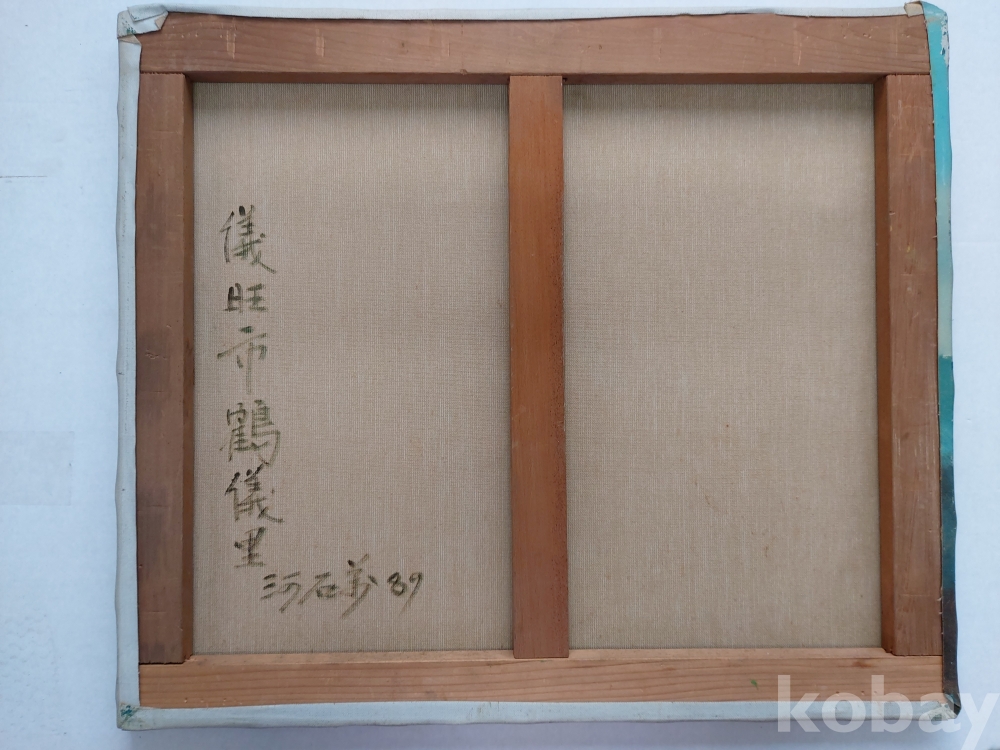 儀旺市鶴儀里
河石芳 89
kobay